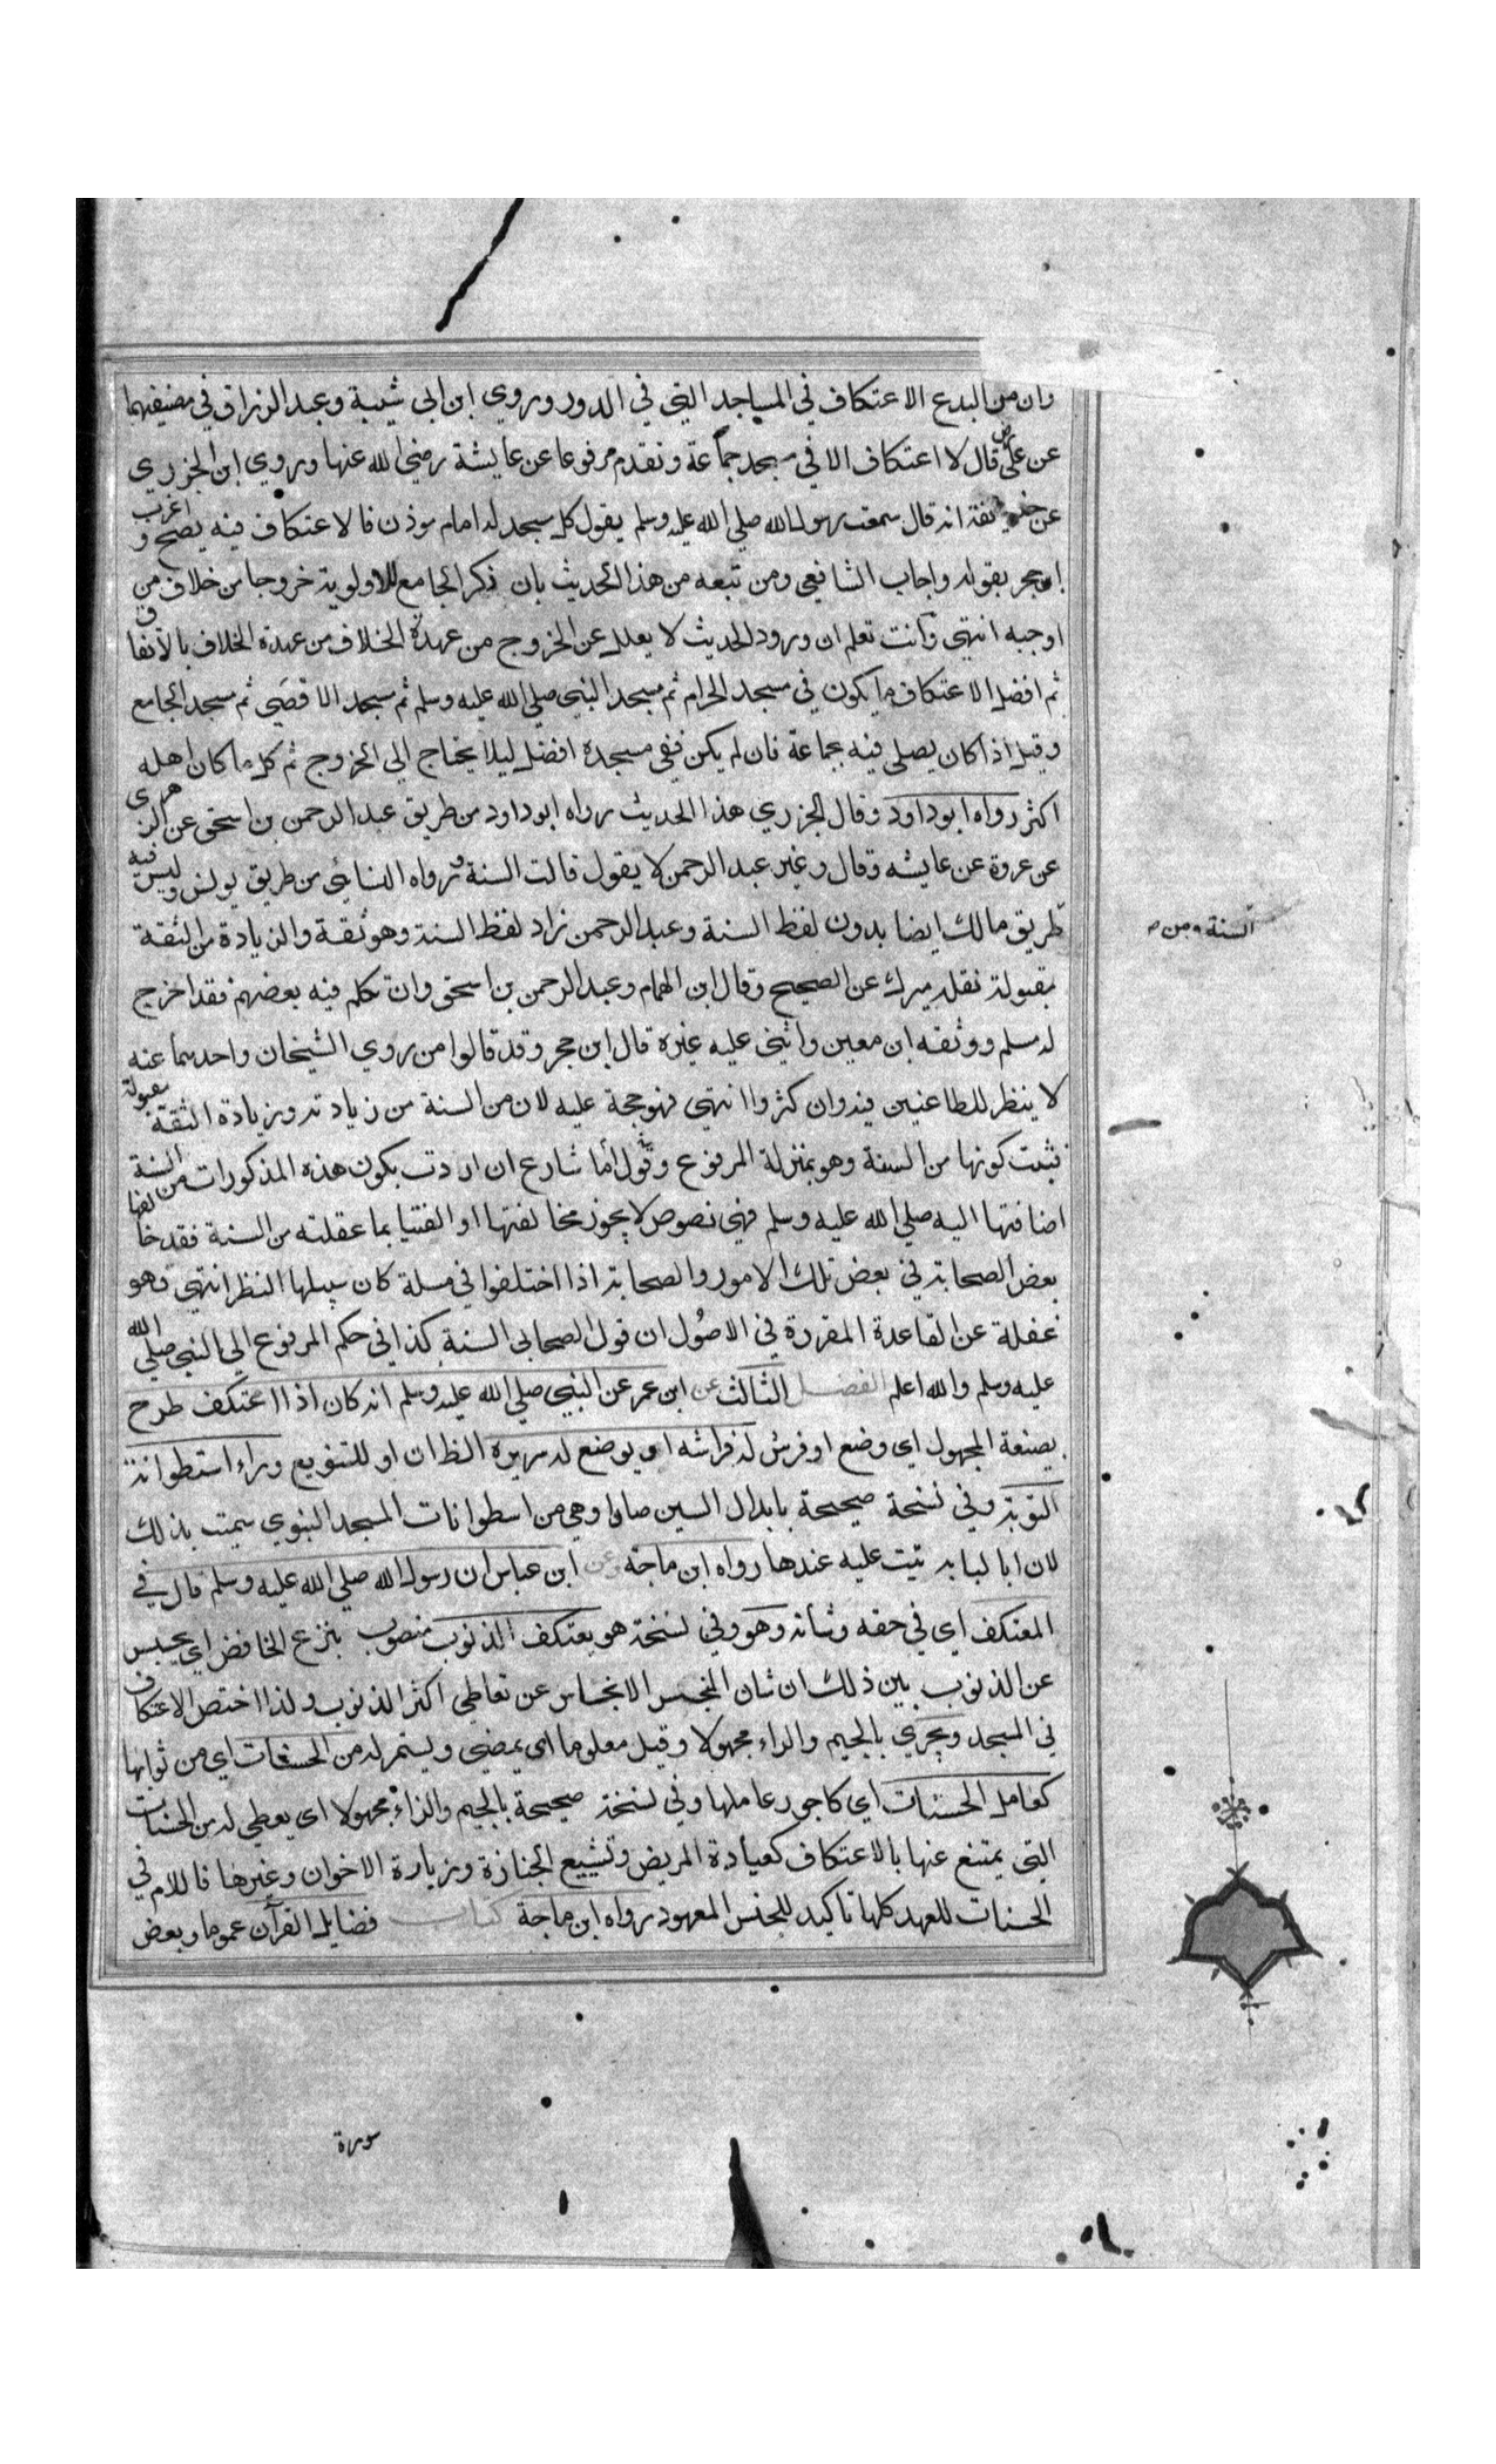 وان من البدع الاعتكاف في المساجد التي في الدور وروي ابن ابي شيبة وعبد الرزاق في مصنفيهما
عن علي رض قال لا اعتكاف الا في مسجد جماعة وتقدم مرفوعا عن عايشة رضي الله عنها وروي ابن الجزري
عن حذيفة انه قال سمعت رسول الله صلي الله عليه وسلم يقول كل مسجد له امام موذن فالاعتكاف فيه يصح و اغرب
ابن حجر بقوله واجاب الشافعي ومن تبعه من هذا الحديث بان ذكر الجامع للاولوية خروجا من خلاف من
اوجبه انتهي وانت تعلم ان ورود الحديث لا يعلل عن الخروج من عهدة الخلاف من عهدة الخلاف بالاتفاق
ثم افضل الاعتكاف ما يكون في مسجد الحرام ثم مسجد النبي صلي الله عليه وسلم ثم مسجد الاقصي ثم مسجد الجامع
وقيل اذا كان يصلي فيه بجماعة فان لم يكن ففي مسجده افضل ليلا يحتاج الي الخروج ثم كل ما كان اهله
اكثر رواه ابو داود وقال الجزري هذا الحديث رواه ابو داود من طريق عبد الرحمن بن اسحق عن الزهري
عن عروة عن عايشه وقال وغير عبد الرحمن لا يقول قالت السنة ورواه النسائي من طريق يونس وليس فيه
طريق مالك ايضا بدون لفظ السنة وعبد الرحمن زاد لفظ السنة وهو ثقة والزيادة من الثقة
السنة ومن ص
مقبولة نقله ميرك عن الصحيح وقال ابن الهمام وعبد الرحمن بن اسحق وان تكلم فيه بعضهم فقد اخرج
له مسلم ووثقه ابن معين واثني عليه غيره قال ابن حجر وقد قالوا من روي الشيخان واحدهما عنه
لا ينظر للطاعنين فيه وان كثروا انتهي فهو حجة عليه لان من السنة من زيادته وزيادة الثقة مقبولة
فثبت كونها من السنة وهو بمنزلة المرفوع وقول اما شارع ان اردت بكون هذه المذكورات من السنة
اضافتها اليه صلي الله عليه وسلم فهي نصوص لا يجوز مخالفتها او الفتيا بما عقلته من السنة فقد خالفها
بعض الصحابة في بعض تلك الامور والصحابة اذا اختلفوا في مسلة كان سبيلها النظر انتهي وهو
غفلة عن القاعدة المقررة في الاصول ان قول الصحابي السنة كذا في حكم المرفوع الي النبي صلي الله
عليه وسلم والله اعلم الفصل الثالث عن ابن عمر عن النبي صلي الله عليه وسلم انه كان اذا اعتكف طرح
بصيغة المجهول اي وضع او فرش له فراشه او يوضع له سريره الظ ان او للتنويع وراء اسطوانة
التوبة وفي نسخة صحيحة بابدال السين صادا وهي من اسطوانات المسجد النبوي سميت بذلك
لان ابا لبابه تيت عليه عندها رواه ابن ماجة وعن ابن عباس ان رسول الله صلي الله عليه وسلم قال في
المعتكف اي في حقه وشانه وهو وفي نسخة هو يعتكف الذنوب منصوب بنزع الخافض اي يحبس
عن الذنوب بين ذلك ان شان المنحبس الانحباس عن تعاطي اكثر الذنوب ولذا اختص الاعتكاف
في المسجد ويجري بالجيم والراء مجهولا وقيل معلوما اي يمضي ويستمر له من الحسنات اي من ثوابها
كعامل الحسنات اي كاجور عاملها وفي نسخة صحيحة بالجيم والزاء مجهولا اي يعطي له من الحسنات
التي يمتنع عنها بالاعتكاف كعيادة المريض وتشييع الجنازة وزيارة الاخوان وغيرها فاللام في
الحسنات للعهد كلها تاكيد للجنس المعهود رواه ابن ماجة كتاب فضايل القرآن عموما وبعض
سورة